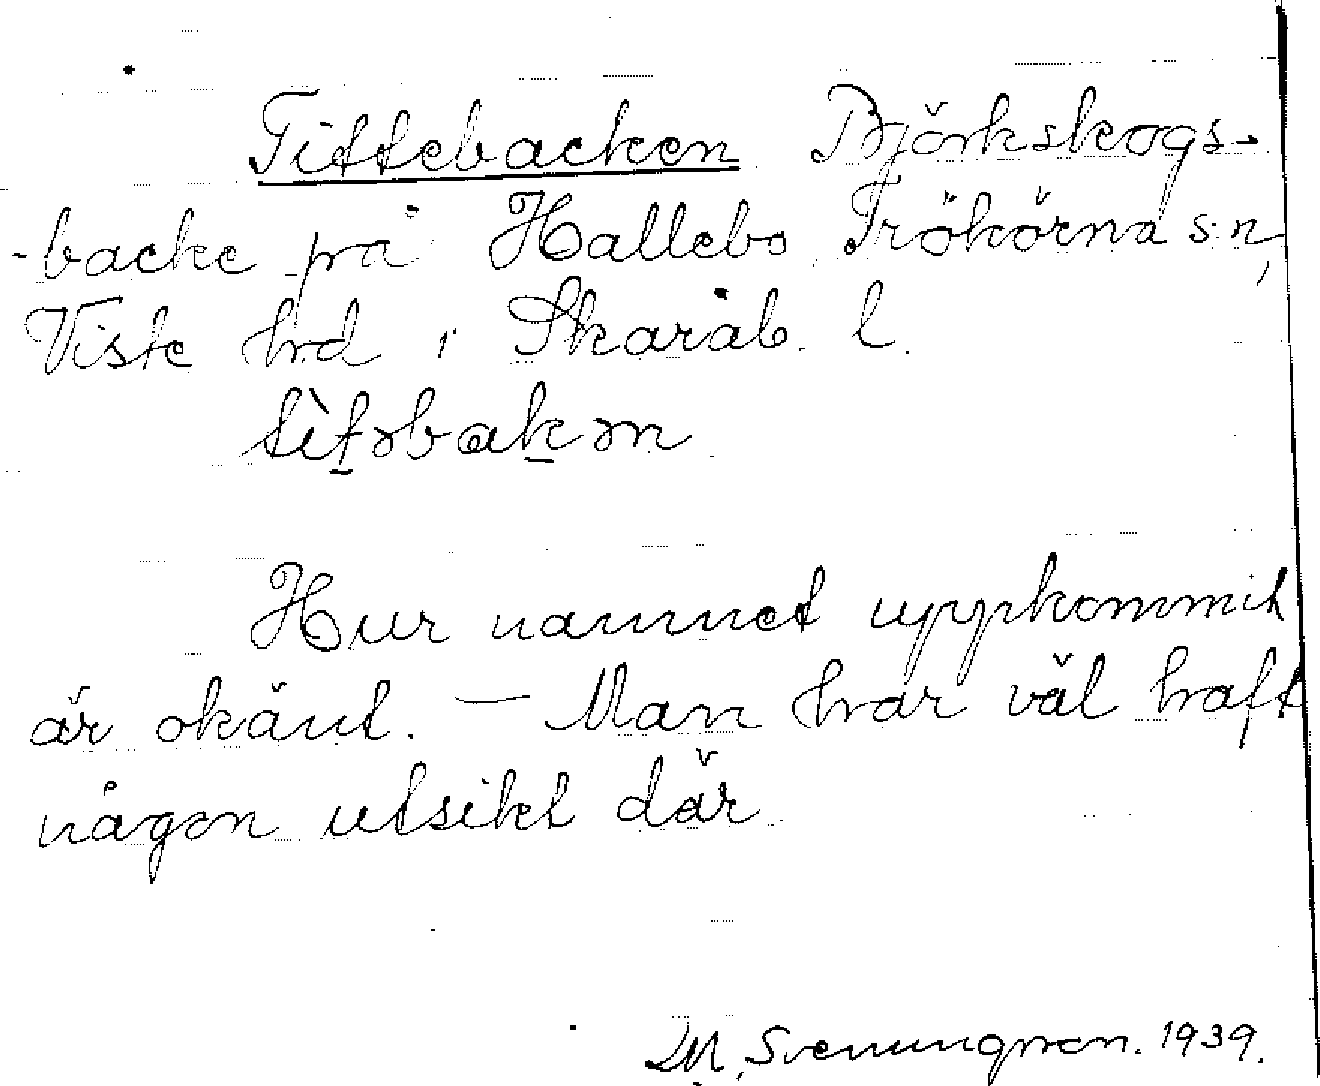 Tittebacken Björkskogs-
-backe på Hallebo, Trökörna s:n,
Viste hrd i Skarab. l.
tìt̲əbak̲ən
Hur namnet uppkommit
är okänt. — Man har väl haft
någon utsikt där.
M. Svenungsson. 1939.